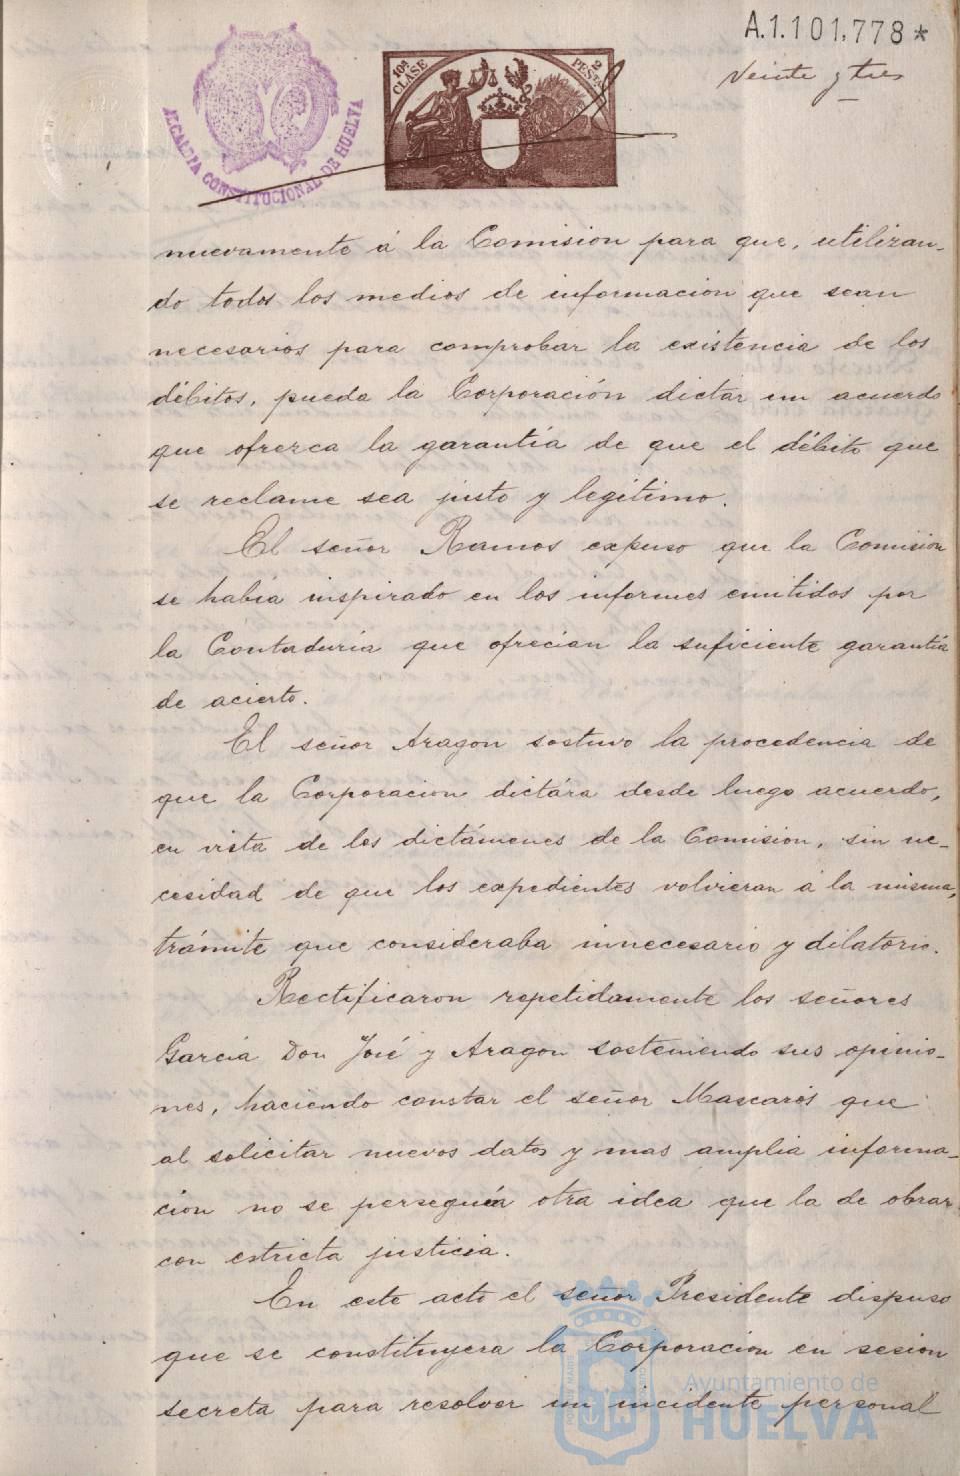 A.1.101,778*
Veinte y tres
10ª CLASE
2 PESETAS
ALCALDIA CONSTITUCIONAL DE HUELVA
nuevamente á la Comision para que, utilizan-
do todos los medios de informacion que sean
necesarios para comprobar la existencia de los
débitos, pueda la Corporación dictar un acuerdo
que ofrezca la garantía de que el débito que
se reclame sea justo y legítimo.
El señor Ramos expuso que la Comision
se había inspirado en los informes emitidos por
la Contaduría que ofrecían la suficiente garantía
de acierto.
El señor Aragon sostuvo la procedencia de
que la Corporacion dictára desde luego acuerdo,
en vista de los dictámenes de la Comision, sin ne-
cesidad de que los expedientes volvieran á la misma,
trámite que consideraba innecesario y dilatorio.
Rectificaron repetidamente los señores
García Don José y Aragon sosteniendo sus opinio-
nes, haciendo constar el señor Mascarós que
al solicitar nuevos datos y mas amplia informa-
cion no se perseguía otra idea que la de obrar
con estricta justicia.
En este acto el señor Presidente dispuso
que se constituyera la Corporacion en sesion
secreta para resolver un incidente personal
Ayuntamiento de
HUELVA